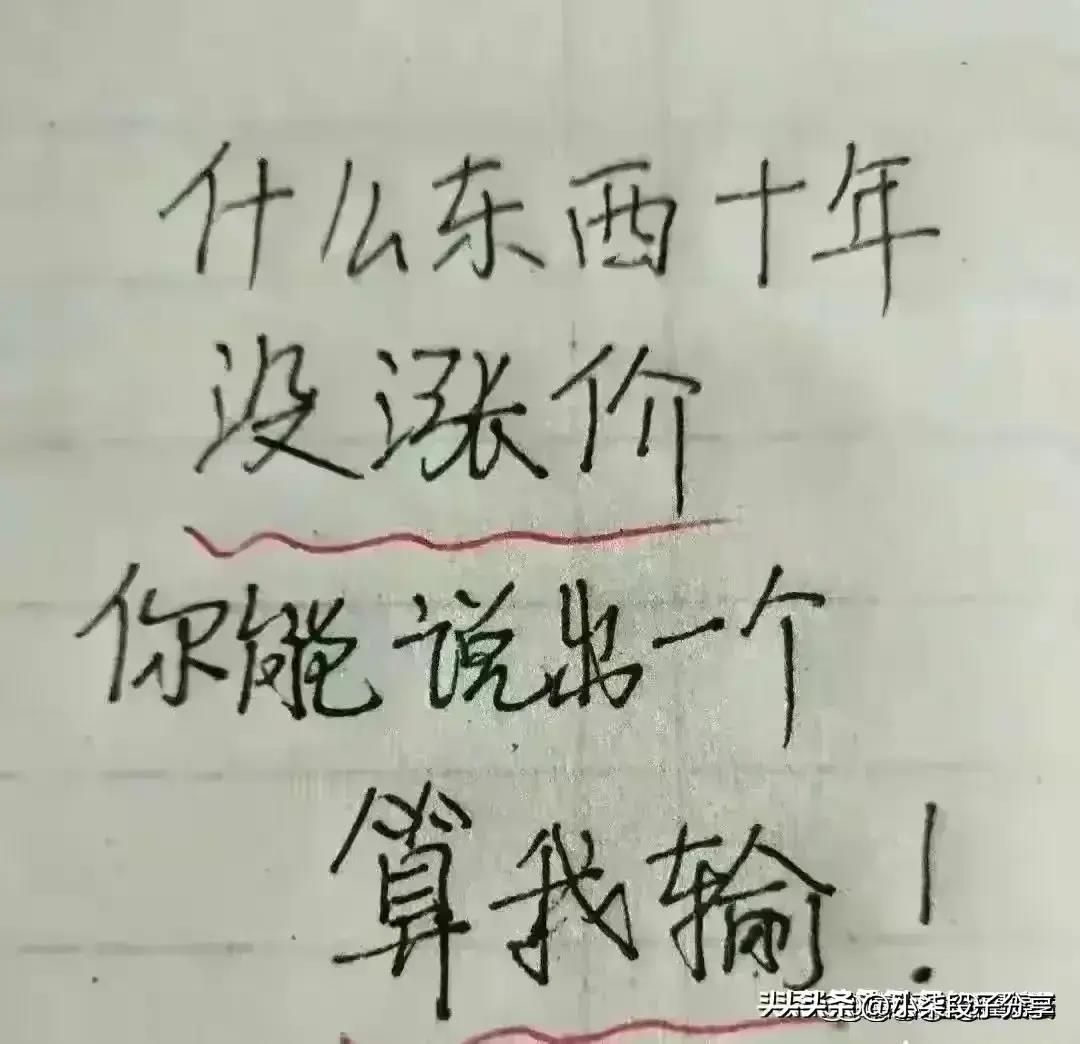 什么东西十年
没涨价
你能说出一个
算我输！
头头条条@小柔段子分享